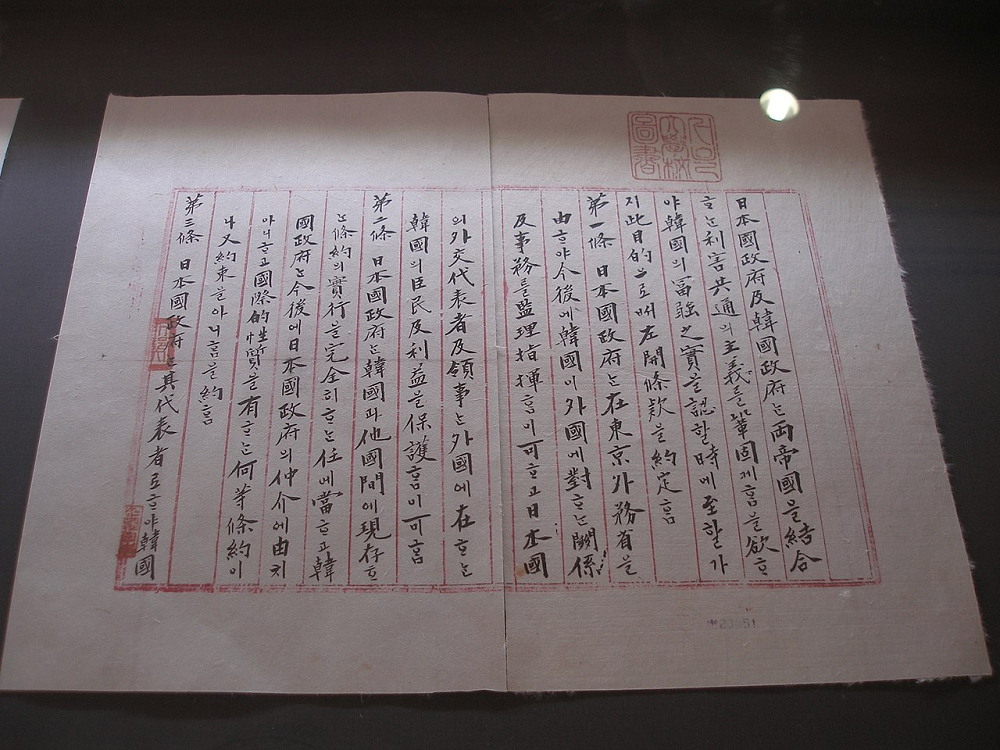 서울大學校圖書
日本國政府及韓國政府ᄂᆞᆫ兩帝國을結合
ᄒᆞᄂᆞᆫ利害共通의主義를鞏固케ᄒᆞᆷ을欲ᄒᆞ
야韓國의富强之實을認ᄒᆞᆯ時에至ᄒᆞᆯ가
지此目的으로ᄡᅥ左開條欵을約定ᄒᆞᆷ
第一條 日本國政府ᄂᆞᆫ在東京外務省을
由ᄒᆞ야今後에韓國이外國에對ᄒᆞᄂᆞᆫ關係
及事務를監理指揮ᄒᆞᆷ이可ᄒᆞ고日本國
의外交代表者及領事ᄂᆞᆫ外國에在ᄒᆞᄂᆞᆫ
韓國의臣民及利益을保護ᄒᆞᆷ이可ᄒᆞᆷ
第二條 日本國政府ᄂᆞᆫ韓國과他國間에現存ᄒᆞ
ᄂᆞᆫ條約의實行을完全히ᄒᆞᄂᆞᆫ任에當ᄒᆞ고韓
國政府ᄂᆞᆫ今後에日本國政府의仲介에由치
아니ᄒᆞ고國際的性質을有ᄒᆞᄂᆞᆫ何等條約이
나又約束을아니ᄒᆞᆷ을約ᄒᆞᆷ
第三條 日本國政府ᄂᆞᆫ其代表者로ᄒᆞ야韓國